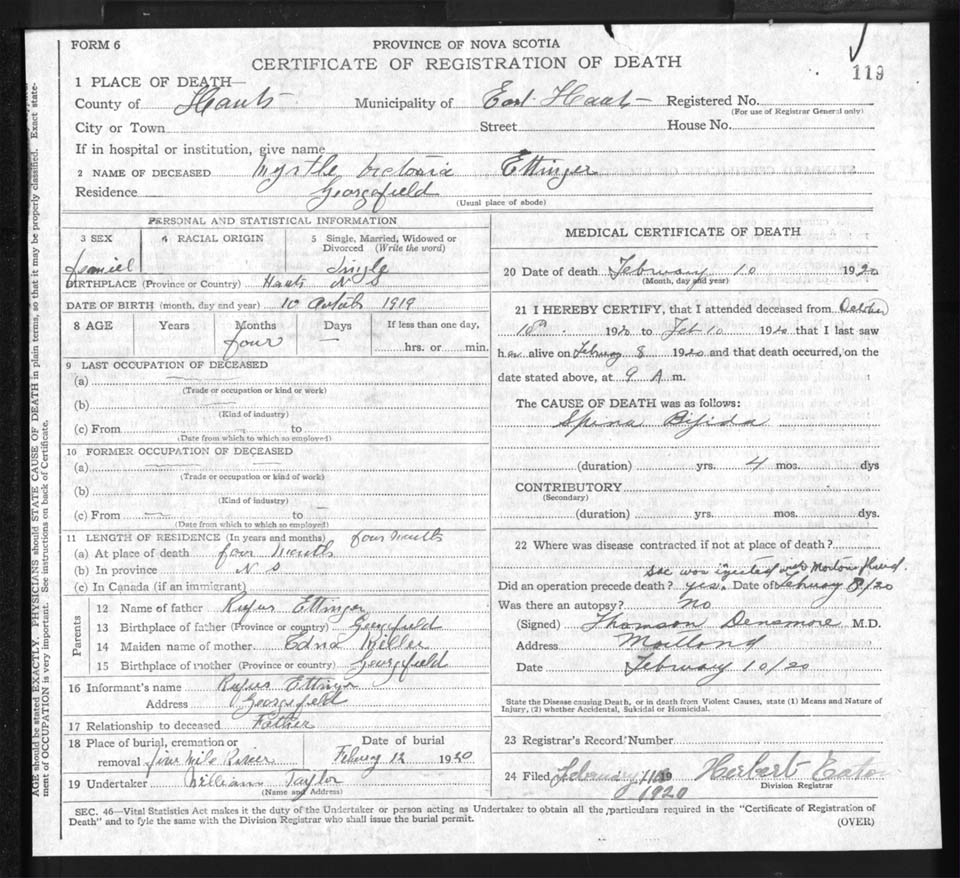 FORM 6
PROVINCE OF NOVA SCOTIA
CERTIFICATE OF REGISTRATION OF DEATH
119
1 PLACE OF DEATH—
County of Hants Municipality of East Hants Registered No.
(For use of Registrar General only)
City or Town Street House No.
If in hospital or institution, give name
2 NAME OF DECEASED Myrtle Victoria Ettinger
Residence Georgefield
(Usual place of abode)
PERSONAL AND STATISTICAL INFORMATION
3 SEX 4 RACIAL ORIGIN 5 Single, Married, Widowed or Divorced (Write the word)
Single
BIRTHPLACE (Province or Country) Hants N S
DATE OF BIRTH (month, day and year) 10 October 1919
8 AGE Years Months Days If less than one day,
four — hrs. or min.
9 LAST OCCUPATION OF DECEASED
(a)
(Trade or occupation or kind or work)
(b)
(Kind of industry)
(c) From to
(Date from which to which so employed)
10 FORMER OCCUPATION OF DECEASED
(a)
(Trade or occupation or kind of work)
(b)
(Kind of industry)
(c) From to
(Date from which to which so employed)
11 LENGTH OF RESIDENCE (In years and months) four months
(a) At place of death four months
(b) In province N S
(c) In Canada (if an immigrant)
Parents
12 Name of father Rufus Ettinger
13 Birthplace of father (Province or country) Georgefield
14 Maiden name of mother Edna Miller
15 Birthplace of mother (Province or country) Georgefield
16 Informant's name Rufus Ettinger
Address Georgefield
17 Relationship to deceased Father
18 Place of burial, cremation or Date of burial
removal five Mile River February 12 1920
19 Undertaker William Taylor
(Name and Address)
MEDICAL CERTIFICATE OF DEATH
20 Date of death February 10 1920
(Month, day and year)
21 I HEREBY CERTIFY, that I attended deceased from October
10th 1920 to Feb 10 1920 that I last saw
her alive on February 8 1920 and that death occurred, on the
date stated above, at 9 A m.
The CAUSE OF DEATH was as follows:
Spina Bifida
(duration) yrs. 4 mos. dys
CONTRIBUTORY
(Secondary)
(duration) yrs. mos. dys.
22 Where was disease contracted if not at place of death?
Sac was injected with Mortons fluid.
Did an operation precede death? yes. Date of February 8/20
Was there an autopsy? No
(Signed) Thomson Densmore M.D.
Address Maitland
Date February 10/20
State the Disease causing Death, or in death from Violent Causes, state (1) Means and Nature of
Injury, (2) whether Accidental, Suicidal or Homicidal.
23 Registrar's Record Number
24 Filed February 19 Herbert Eaton
1920 Division Registrar
SEC. 46—Vital Statistics Act makes it the duty of the Undertaker or person acting as Undertaker to obtain all the particulars required in the "Certificate of Registration of
Death" and to fyle the same with the Division Registrar who shall issue the burial permit.
(OVER)
AGE should be stated EXACTLY. PHYSICIANS should STATE CAUSE OF DEATH in plain terms, so that it may be properly classified. Exact state-
ment of OCCUPATION is very important. See instructions on back of Certificate.